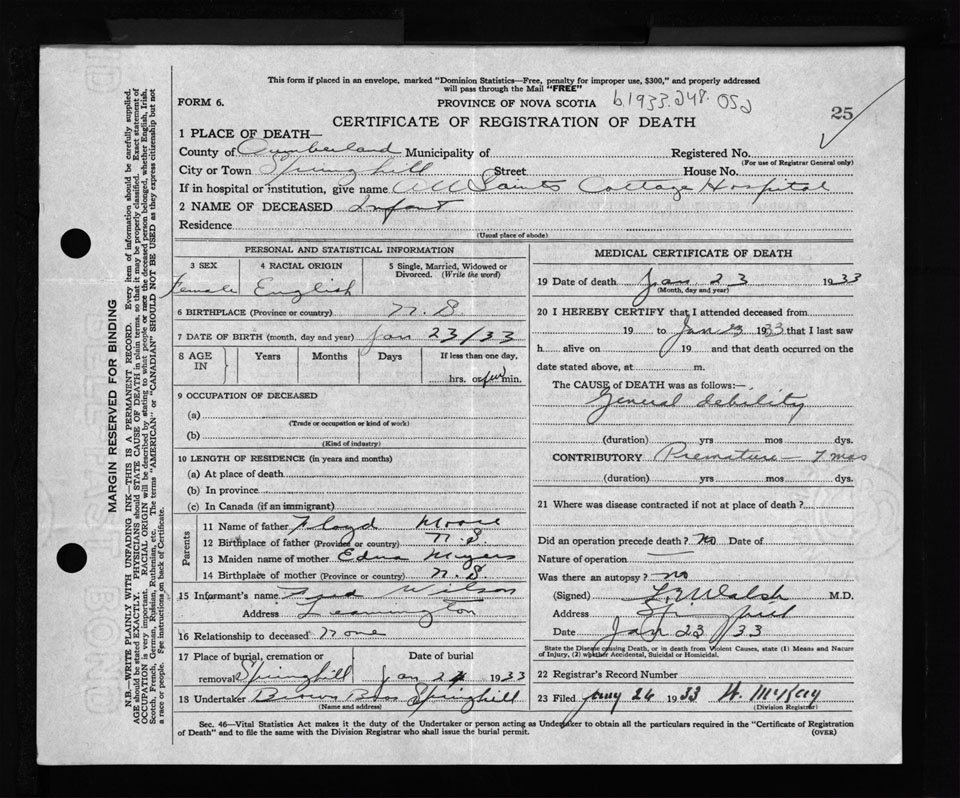 This form if placed in an envelope, marked "Dominion Statistics—Free, penalty for improper use, $300," and properly addressed
will pass through the Mail "FREE"
FORM 6.
PROVINCE OF NOVA SCOTIA b.1933.248.052
CERTIFICATE OF REGISTRATION OF DEATH
25
1 PLACE OF DEATH—
County of Cumberland Municipality of Registered No.
(For use of Registrar General only)
City or Town Springhill Street House No.
If in hospital or institution, give name All Saints Cottage Hospital
2 NAME OF DECEASED Infant
Residence
(Usual place of abode)
PERSONAL AND STATISTICAL INFORMATION
3 SEX 4 RACIAL ORIGIN 5 Single, Married, Widowed or Divorced. (Write the word)
Female English
6 BIRTHPLACE (Province or country) N.S
7 DATE OF BIRTH (month, day and year) Jan 23/33
8 AGE IN Years Months Days If less than one day,
hrs. or few min.
9 OCCUPATION OF DECEASED
(a)
(Trade or occupation or kind of work)
(b)
(Kind of industry)
10 LENGTH OF RESIDENCE (in years and months)
(a) At place of death
(b) In province
(c) In Canada (if an immigrant)
Parents
11 Name of father Floyd Moore
12 Birthplace of father (Province or country) N.S
13 Maiden name of mother Edna Myers
14 Birthplace of mother (Province or country) N.S
15 Informant's name Fred Wilson
Address Leamington
16 Relationship to deceased None
17 Place of burial, cremation or Date of burial
removal Springhill Jan 24 1933
18 Undertaker Brown Bros Springhill
(Name and address)
MEDICAL CERTIFICATE OF DEATH
19 Date of death Jan 23 1933
(Month, day and year)
20 I HEREBY CERTIFY that I attended deceased from
19 to Jan 23 1933 that I last saw
h alive on 19 and that death occurred on the
date stated above, at m.
The CAUSE of DEATH was as follows:—
General debility
(duration) yrs mos dys.
CONTRIBUTORY Premature — 7 mos
(duration) yrs mos dys.
21 Where was disease contracted if not at place of death?
Did an operation precede death? No Date of
Nature of operation —
Was there an autopsy? no
(Signed) Walsh M.D.
Address
Date Jan 23 / 33
State the Disease causing Death, or in death from Violent Causes, state (1) Means and Nature
of Injury, (2) whether Accidental, Suicidal or Homicidal.
22 Registrar's Record Number
23 Filed Jany 24 1933 H. McKay
(Division Registrar)
Sec. 46—Vital Statistics Act makes it the duty of the Undertaker or person acting as Undertaker to obtain all the particulars required in the "Certificate of Registration
of Death" and to file the same with the Division Registrar who shall issue the burial permit. (OVER)
MARGIN RESERVED FOR BINDING
N.B.—WRITE PLAINLY WITH UNFADING INK—THIS IS A PERMANENT RECORD. Every item of information should be carefully supplied.
AGE should be stated EXACTLY. PHYSICIANS should STATE CAUSE OF DEATH in plain terms, so that it may be properly classified. Exact statement of
OCCUPATION is very important. RACIAL ORIGIN will be described by stating to what people or race the deceased person belonged, whether English, Irish,
Scotch, French, German, Russian, Ruthenian, etc. The terms "AMERICAN" or "CANADIAN" SHOULD NOT BE USED as they express citizenship but not
a race or people. See instructions on back of Certificate.